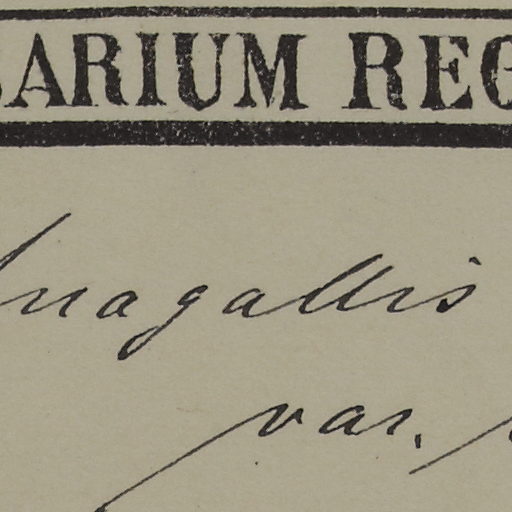 BARIUM REG
Anagallis
var.